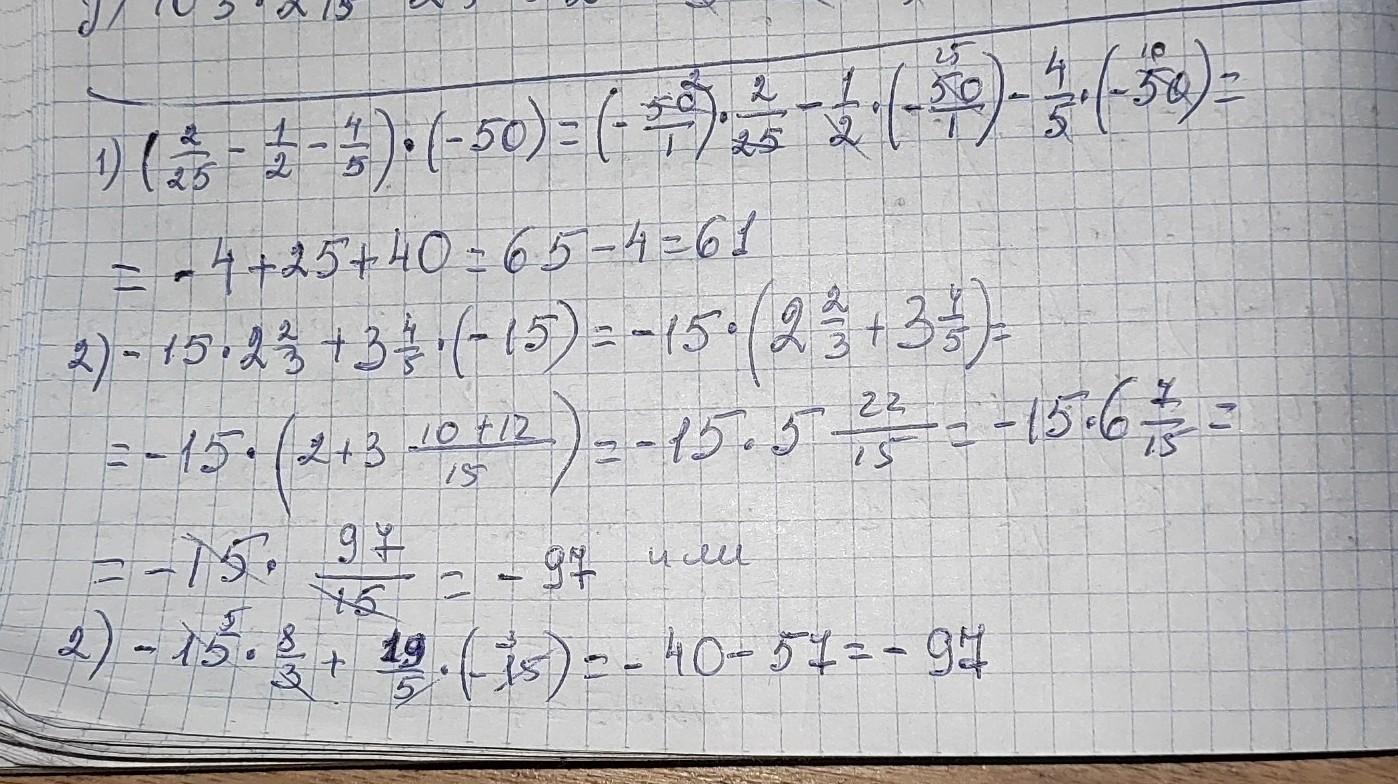 1) (2/25 - 1/2 - 4/5) · (-50) = (-50/1) · 2/25 - 1/2 · (-50/1) - 4/5 · (-50) =
= -4 + 25 + 40 = 65 - 4 = 61
2) - 15 · 2 2/3 + 3 4/5 · (-15) = -15 · (2 2/3 + 3 4/5) =
= -15 · (2+3 10+12/15) = -15 · 5 22/15 = -15 · 6 7/15 =
= -15 · 97/15 = - 97 или
2) - 15 · 8/3 + 19/5 · (-15) = - 40 - 57 = - 97